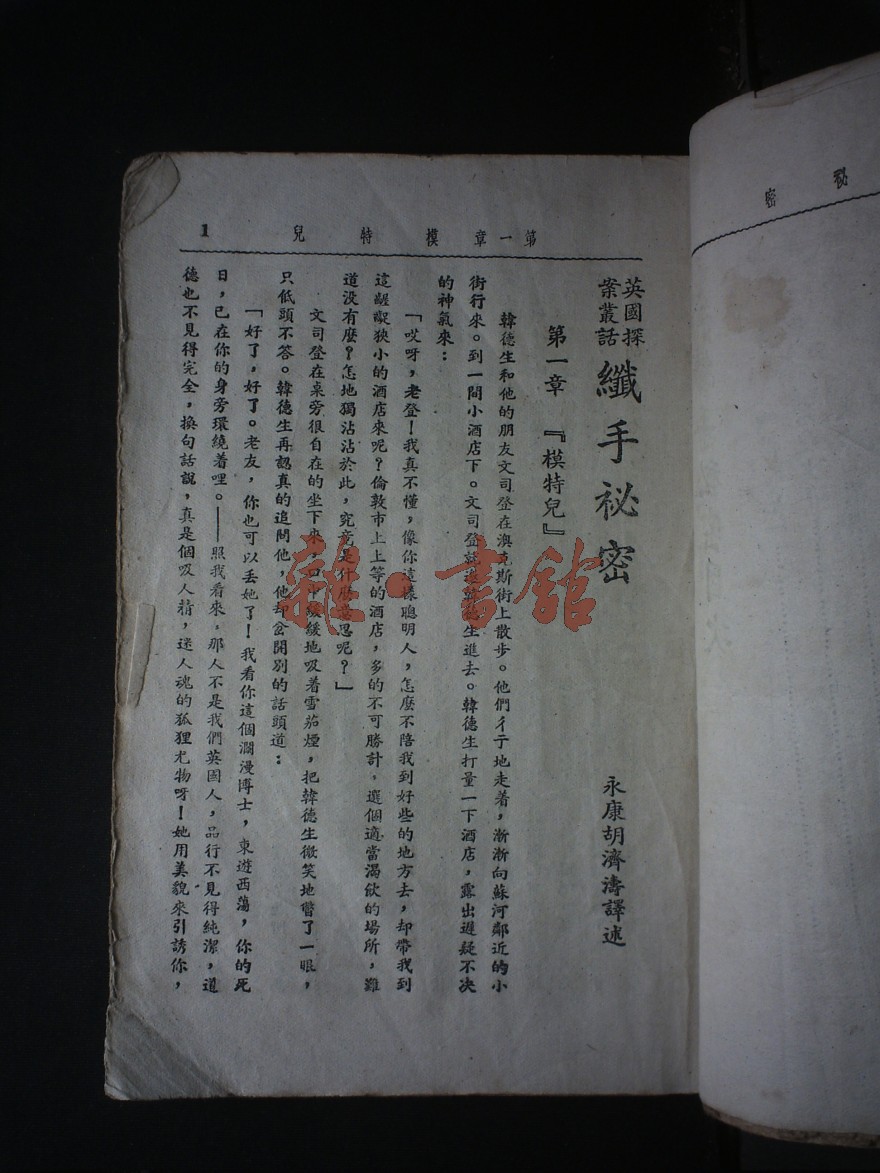 祕密
第一章 模特兒 1
英國探案叢話 纖手祕密
永康胡濟濤譯述
第一章 『模特兒』
韓德生和他的朋友文司登在澳克斯街上散步。他們彳亍地走着，漸漸向蘇河鄰近的小
街行來。到一間小酒店下。文司登 生進去。韓德生打量一下酒店，露出遲疑不决
的神氣來：
「哎呀，老登！我真不懂，像你這樣聰明人，怎麼不陪我到好些的地方去，却帶我到
這齷齪狹小的酒店來呢？倫敦市上上等的酒店，多的不可勝計，選個適當渴飲的場所，難
道没有麼？怎地獨沾沾於此，究竟是什麼意思呢？」
文司登在桌旁很自在的坐下來，口中緩緩地吸着雪茄煙，把韓德生微笑地瞥了一眼，
只低頭不答。韓德生再認真的追問他，他却岔開别的話頭道：
「好了，好了。老友，你也可以丢她了！我看你這個瀾漫博士，東遊西蕩，你的死
日，已在你的身旁環繞着哩。——照我看來，那人不是我們英國人，品行不見得純潔，道
德也不見得完全，換句話說，真是個吸人精，迷人魂的狐狸尤物呀！她用美貌來引誘你，
雜·書館